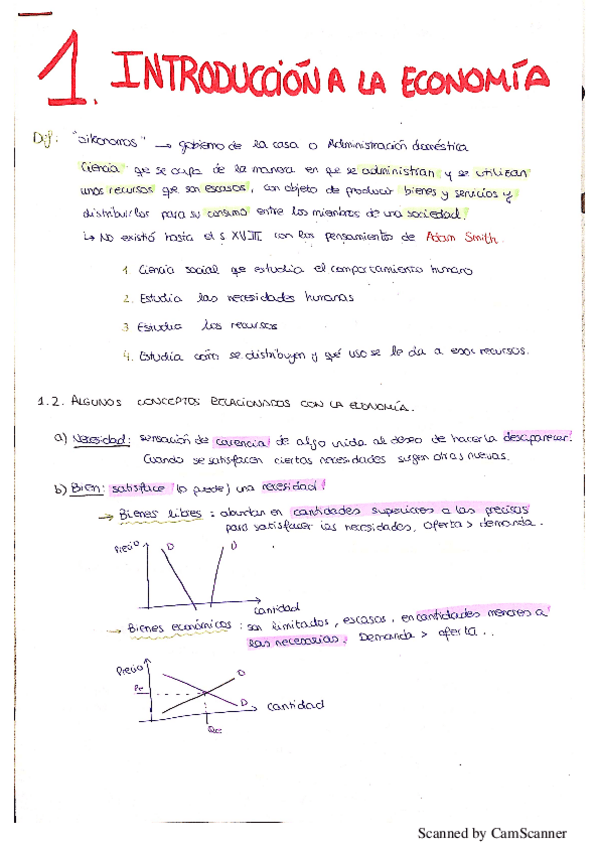 1. INTRODUCCIÓN A LA ECONOMÍA
Def: "oikonomos" → gobierno de la casa o Administración doméstica
Ciencia que se ocupa de la manera en que se administran y se utilizan
unos recursos que son escasos, con objeto de producir bienes y servicios y
distribuirlos para su consumo entre los miembros de una sociedad.
↳ No existió hasta el s XVIII con los pensamientos de Adam Smith
1 Ciencia social que estudia el comportamiento humano
2. Estudia las necesidades humanas
3 Estudia los recursos
4. Estudia como se distribuyen y qué uso se le da a esos recursos.
1.2. ALGUNOS CONCEPTOS RELACIONADOS CON LA ECONOMÍA.
a) Necesidad: sensación de carencia de algo unida al deseo de hacerla desaparecer.
Cuando se satisfacen ciertas necesidades surgen otras nuevas.
b) Bien: satisface (o puede) una necesidad
→ Bienes libres: abundan en cantidades superiores a las precisas
para satisfacer las necesidades. Oferta > demanda.
Precio
D
O
cantidad
→ Bienes económicos: son limitados, escasos, en cantidades menores a
las necesarias. Demanda > oferta...
Precio
O
Pe
D
cantidad
Scanned by CamScanner